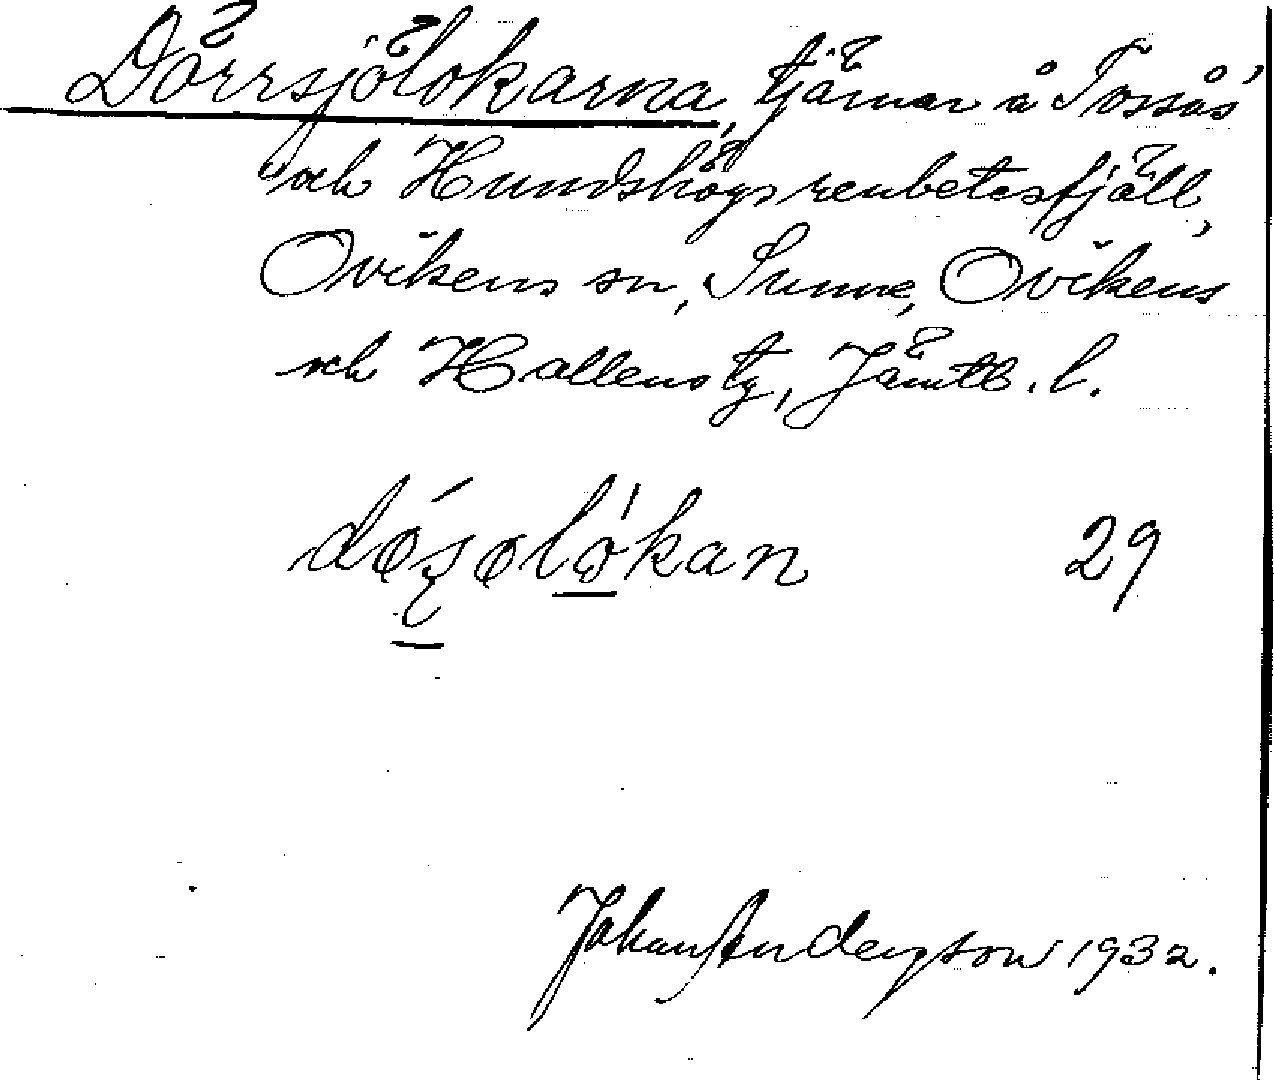 Dörrsjölokarna, tjärnar å Tossås'
och Hundshögs renbetesfjäll,
Ovikens sn, Sunne, Ovikens
och Hallens tg, Jämtl. l.
29
Johan Anderzson 1932.